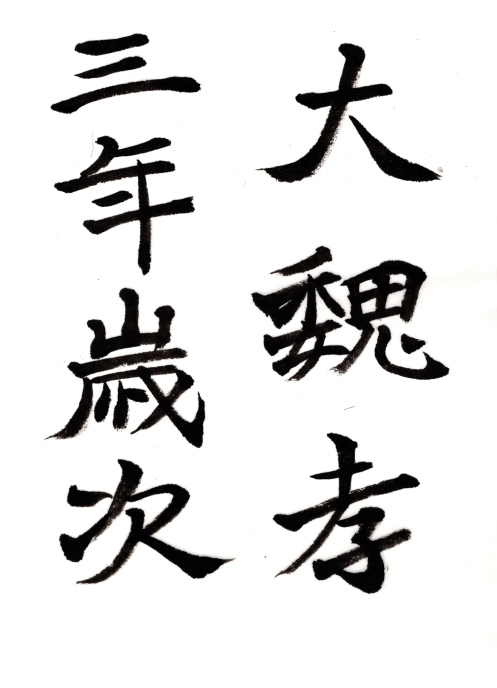 大魏孝
三年歳次